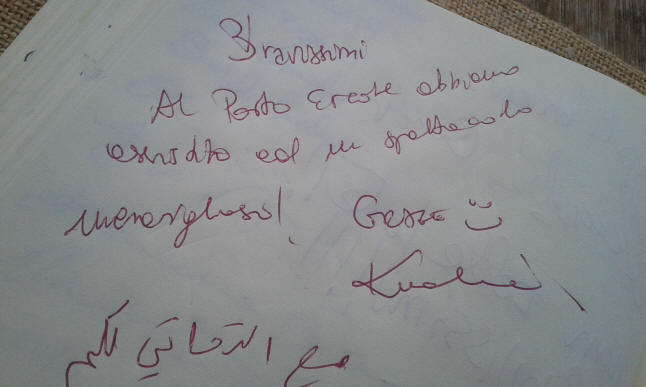 Bravissimi
Al Porto Ercole abbiamo
assistito ad un spettacolo
meraviglioso! Grazie :)
مع التحياتي لكم